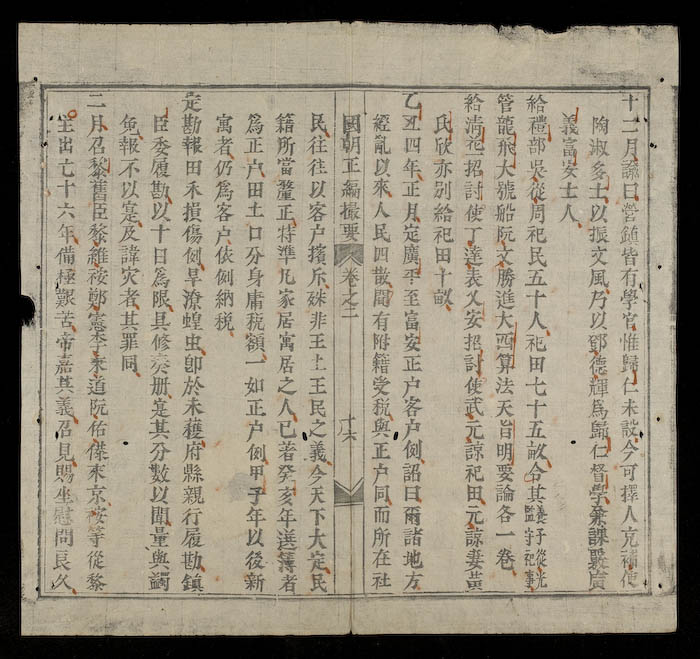 十二月諭曰營鎮皆有學官惟歸仁未設今可擇人充補使
陶淑多士以振文風乃以鄧德輝為歸仁督學兼課嚴廣
義富安士人
給禮部吳從周祀民五十人祀田七十五畝令其養子從光監守祀事
管龍飛大號船阮文勝進大西算法天旨明要論各一卷
給清花招討使丁達表乂安招討使武元諒祀田元諒妻黃
氏欣亦別給祀田十畝
乙丑四年正月定廣平至富安正户客户例詔曰爾諸地方
經亂以來人民四散間有附籍受稅與正户同而所在社
國朝正編撮要 卷之二 十六
民往往以客户擯斥殊非王土王民之義今天下大定民
籍所當釐正特準凡家居寓居之人已著癸亥年選簿者
為正户田土口分身庸稅額一如正户例甲子年以後新
寓者仍為客户依例納稅
定勘報田禾損傷例旱潦蝗虫卽於未穫府縣親行履勘鎮
臣委履勘以十日為限具修奏册寔其分數以聞量與蠲
免報不以寔及諱灾者其罪同
二月召黎舊臣黎維𥙿鄭憲李秉道阮佑傑來京等從黎
主出亡十六年備極艱苦帝嘉其義召見賜坐慰問良久